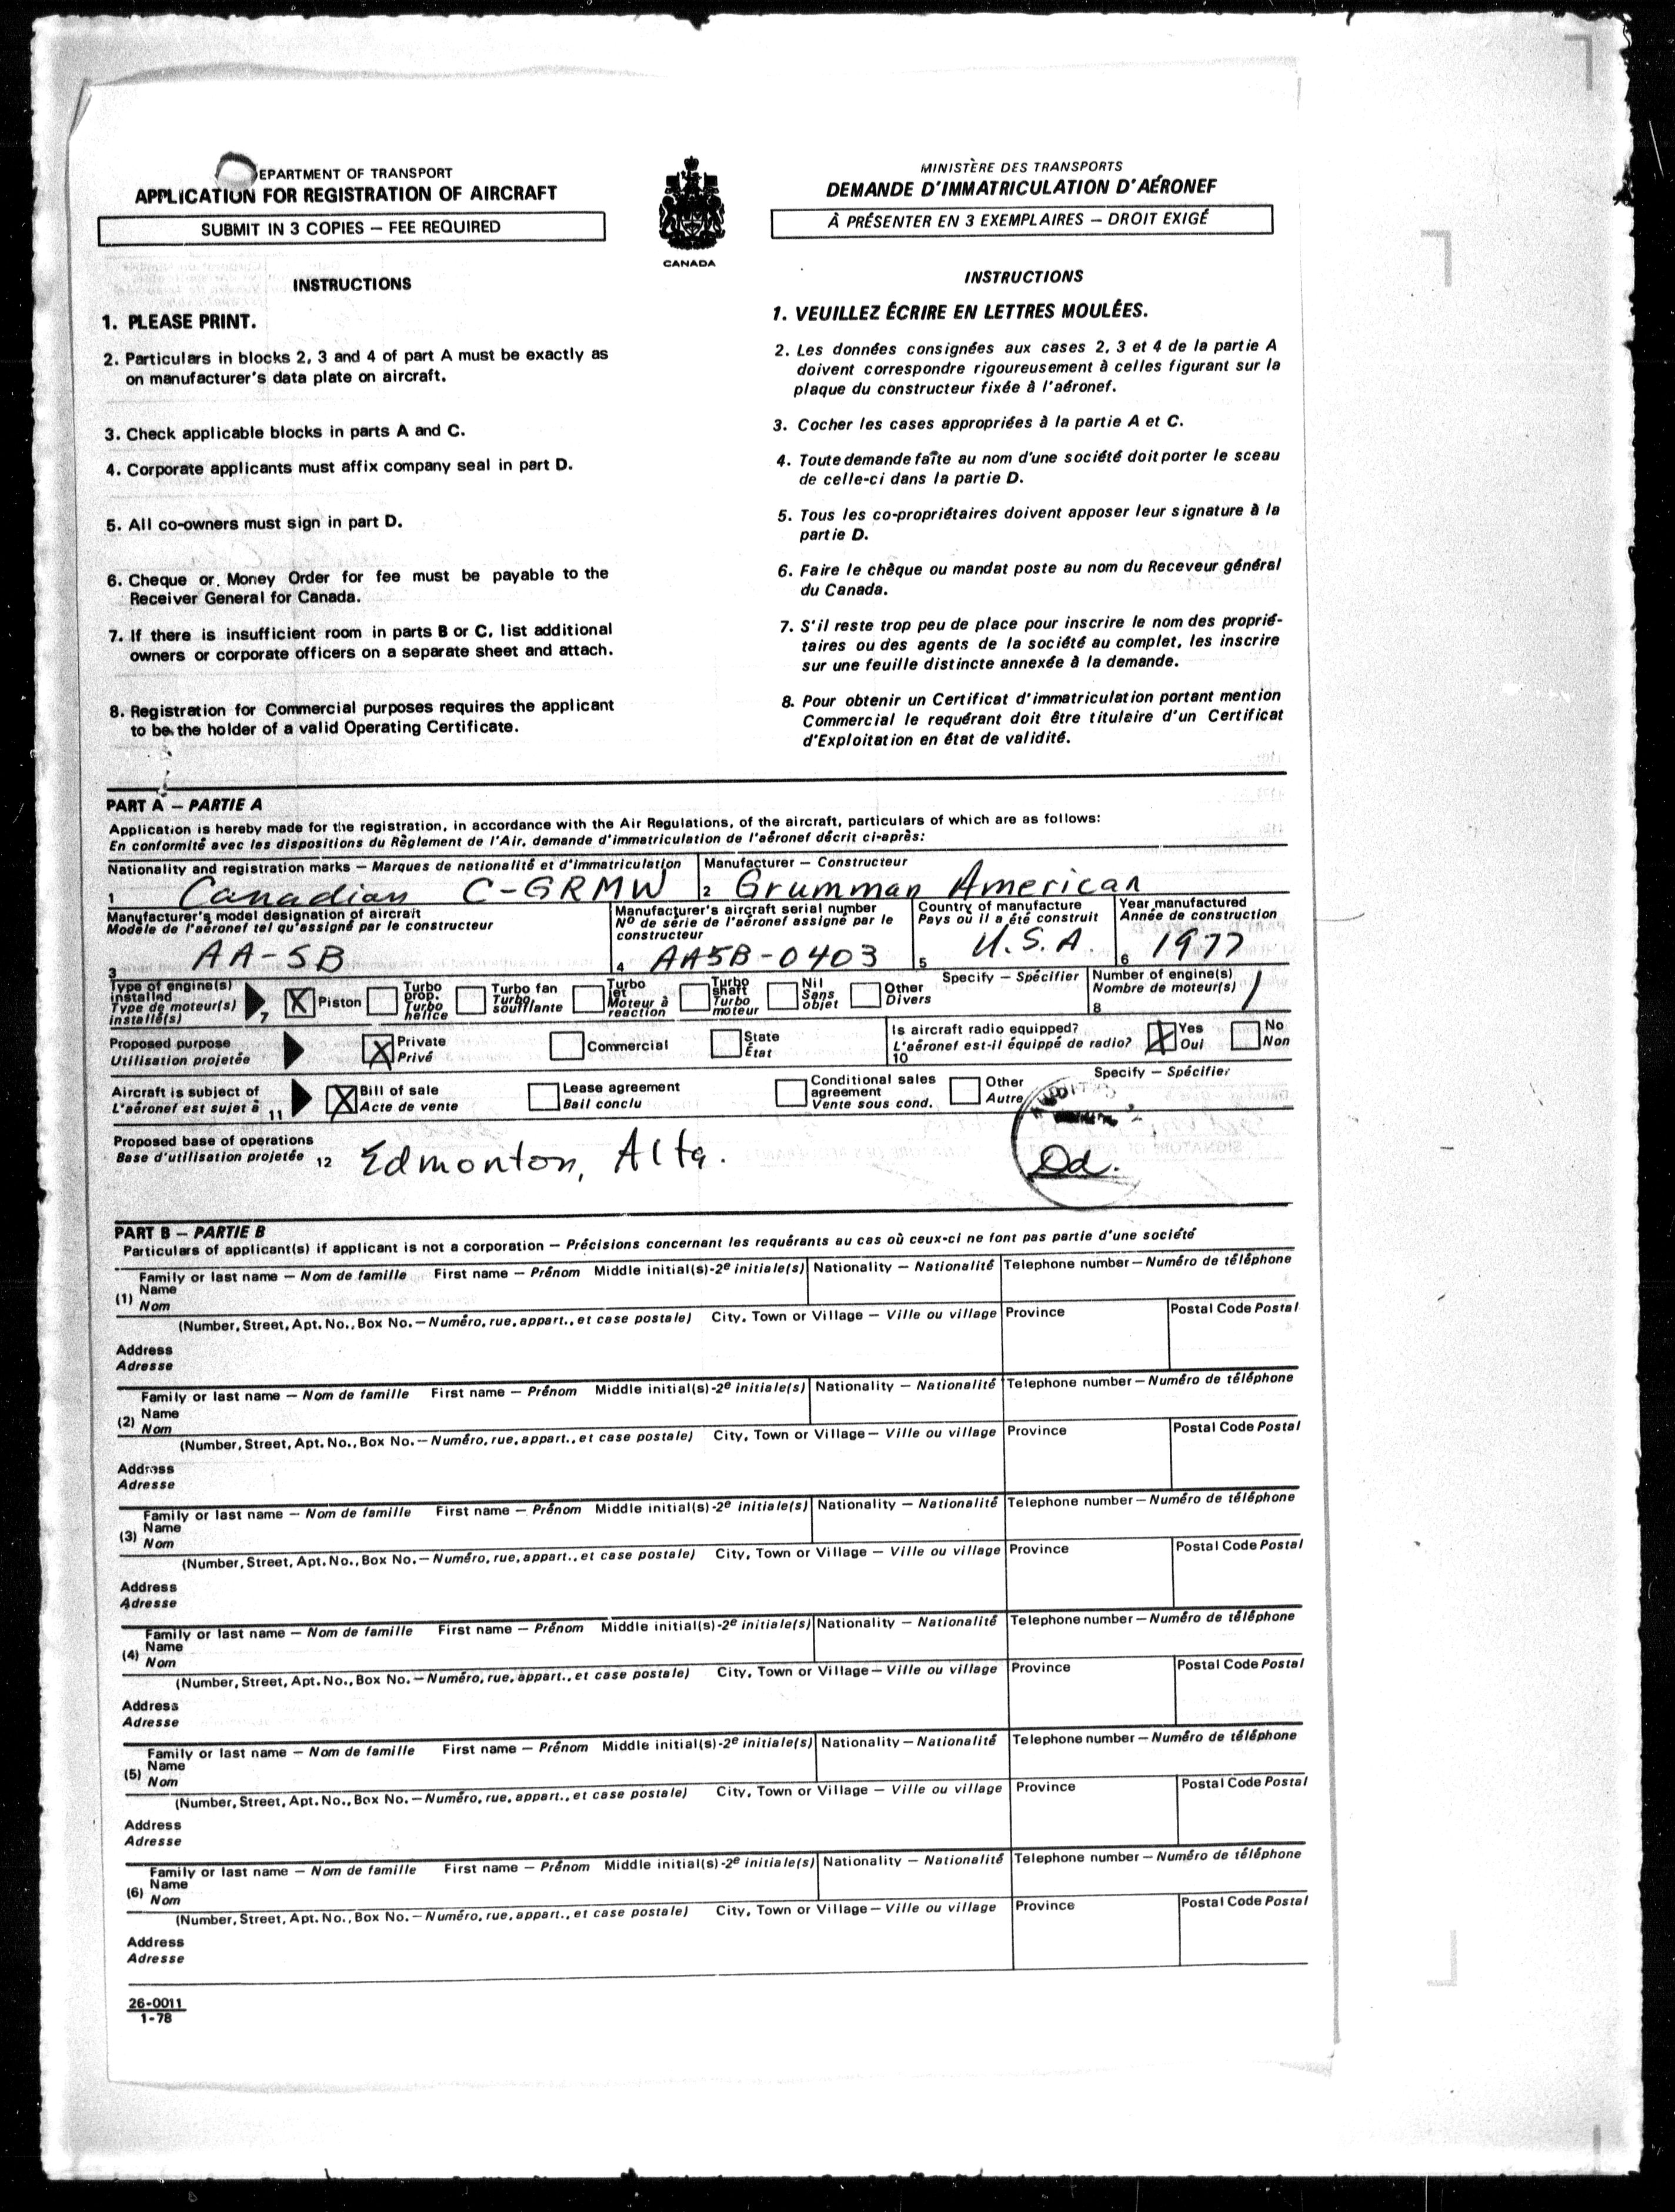 DEPARTMENT OF TRANSPORT
APPLICATION FOR REGISTRATION OF AIRCRAFT
SUBMIT IN 3 COPIES – FEE REQUIRED
CANADA
MINISTÈRE DES TRANSPORTS
DEMANDE D'IMMATRICULATION D'AÉRONEF
À PRÉSENTER EN 3 EXEMPLAIRES – DROIT EXIGÉ
INSTRUCTIONS
1. PLEASE PRINT.
2. Particulars in blocks 2, 3 and 4 of part A must be exactly as
on manufacturer's data plate on aircraft.
3. Check applicable blocks in parts A and C.
4. Corporate applicants must affix company seal in part D.
5. All co-owners must sign in part D.
6. Cheque or Money Order for fee must be payable to the
Receiver General for Canada.
7. If there is insufficient room in parts B or C, list additional
owners or corporate officers on a separate sheet and attach.
8. Registration for Commercial purposes requires the applicant
to be the holder of a valid Operating Certificate.
INSTRUCTIONS
1. VEUILLEZ ÉCRIRE EN LETTRES MOULÉES.
2. Les données consignées aux cases 2, 3 et 4 de la partie A
doivent correspondre rigoureusement à celles figurant sur la
plaque du constructeur fixée à l'aéronef.
3. Cocher les cases appropriées à la partie A et C.
4. Toute demande faîte au nom d'une société doit porter le sceau
de celle-ci dans la partie D.
5. Tous les co-propriétaires doivent apposer leur signature à la
partie D.
6. Faire le chèque ou mandat poste au nom du Receveur général
du Canada.
7. S'il reste trop peu de place pour inscrire le nom des proprié-
taires ou des agents de la société au complet, les inscrire
sur une feuille distincte annexée à la demande.
8. Pour obtenir un Certificat d'immatriculation portant mention
Commercial le requérant doit être titulaire d'un Certificat
d'Exploitation en état de validité.
PART A – PARTIE A
Application is hereby made for the registration, in accordance with the Air Regulations, of the aircraft, particulars of which are as follows:
En conformité avec les dispositions du Règlement de l'Air, demande d'immatriculation de l'aéronef décrit ci-après:
Nationality and registration marks – Marques de nationalité et d'immatriculation
1 Canadian C-GRMW
Manufacturer – Constructeur
2 Grumman American
Manufacturer's model designation of aircraft
Modèle de l'aéronef tel qu'assigné par le constructeur
3 AA-5B
Manufacturer's aircraft serial number
Nº de série de l'aéronef assigné par le
constructeur
4 AA5B-0403
Country of manufacture
Pays où il a été construit
5 U.S.A.
Year manufactured
Année de construction
6 1977
Type of engine(s)
installed
Type de moteur(s)
installé(s)
7 X Piston
Turbo
prop.
Turbo
hélice
Turbo fan
Turbo
soufflante
Turbo
jet
Moteur à
reaction
Turbo
shaft
Turbo
moteur
Nil
Sans
objet
Other
Divers
Specify – Spécifier
Number of engine(s)
Nombre de moteur(s)
8 1
Proposed purpose
Utilisation projetée
X Private
Privé
Commercial
State
État
Is aircraft radio equipped?
L'aéronef est-il équippé de radio?
10
X Yes
Oui
No
Non
Aircraft is subject of
L'aéronef est sujet à 11
X Bill of sale
Acte de vente
Lease agreement
Bail conclu
Conditional sales
agreement
Vente sous cond.
Other
Autre
Specify – Spécifier
Proposed base of operations
Base d'utilisation projetée 12
Edmonton, Alta.
PART B – PARTIE B
Particulars of applicant(s) if applicant is not a corporation – Précisions concernant les requérants au cas où ceux-ci ne font pas partie d'une société
Family or last name – Nom de famille First name – Prénom Middle initial(s)-2e initiale(s) Nationality – Nationalité Telephone number – Numéro de téléphone
(1) Name
Nom
(Number, Street, Apt. No., Box No. – Numéro, rue, appart., et case postale) City, Town or Village – Ville ou village Province Postal Code Postal
Address
Adresse
Family or last name – Nom de famille First name – Prénom Middle initial(s)-2e initiale(s) Nationality – Nationalité Telephone number – Numéro de téléphone
(2) Name
Nom
(Number, Street, Apt. No., Box No. – Numéro, rue, appart., et case postale) City, Town or Village – Ville ou village Province Postal Code Postal
Address
Adresse
Family or last name – Nom de famille First name – Prénom Middle initial(s)-2e initiale(s) Nationality – Nationalité Telephone number – Numéro de téléphone
(3) Name
Nom
(Number, Street, Apt. No., Box No. – Numéro, rue, appart., et case postale) City, Town or Village – Ville ou village Province Postal Code Postal
Address
Adresse
Family or last name – Nom de famille First name – Prénom Middle initial(s)-2e initiale(s) Nationality – Nationalité Telephone number – Numéro de téléphone
(4) Name
Nom
(Number, Street, Apt. No., Box No. – Numéro, rue, appart., et case postale) City, Town or Village – Ville ou village Province Postal Code Postal
Address
Adresse
Family or last name – Nom de famille First name – Prénom Middle initial(s)-2e initiale(s) Nationality – Nationalité Telephone number – Numéro de téléphone
(5) Name
Nom
(Number, Street, Apt. No., Box No. – Numéro, rue, appart., et case postale) City, Town or Village – Ville ou village Province Postal Code Postal
Address
Adresse
Family or last name – Nom de famille First name – Prénom Middle initial(s)-2e initiale(s) Nationality – Nationalité Telephone number – Numéro de téléphone
(6) Name
Nom
(Number, Street, Apt. No., Box No. – Numéro, rue, appart., et case postale) City, Town or Village – Ville ou village Province Postal Code Postal
Address
Adresse
26-0011
1-78